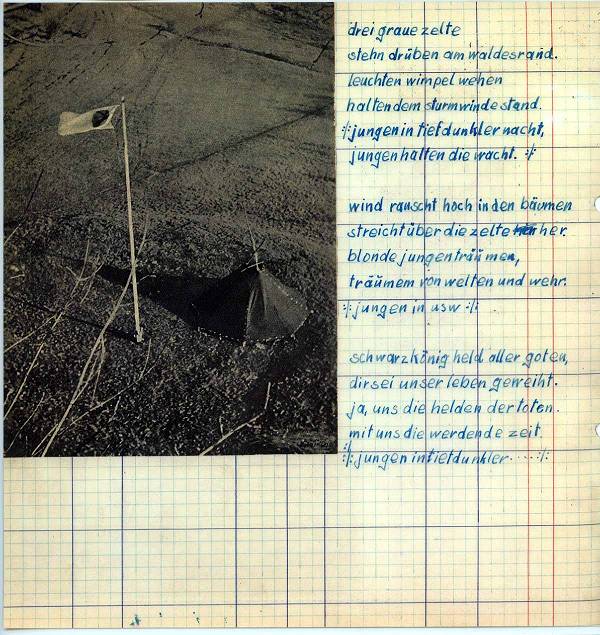 drei graue zelte
stehn drüben am waldesrand.
leuchten wimpel wehen
halten dem sturmwinde stand.
:/: jungen in tiefdunkler nacht,
jungen halten die wacht. :/:
wind rauscht hoch in den bäumen
streicht über die zelte her.
blonde jungen träumen,
träumem von welten und wehr.
:/: jungen in usw :/:
schwarzkönig held aller goten,
dir sei unser leben geweiht.
ja, uns die helden der toten.
mit uns die werdende zeit.
:/: jungen in tiefdunkler ..... :/: